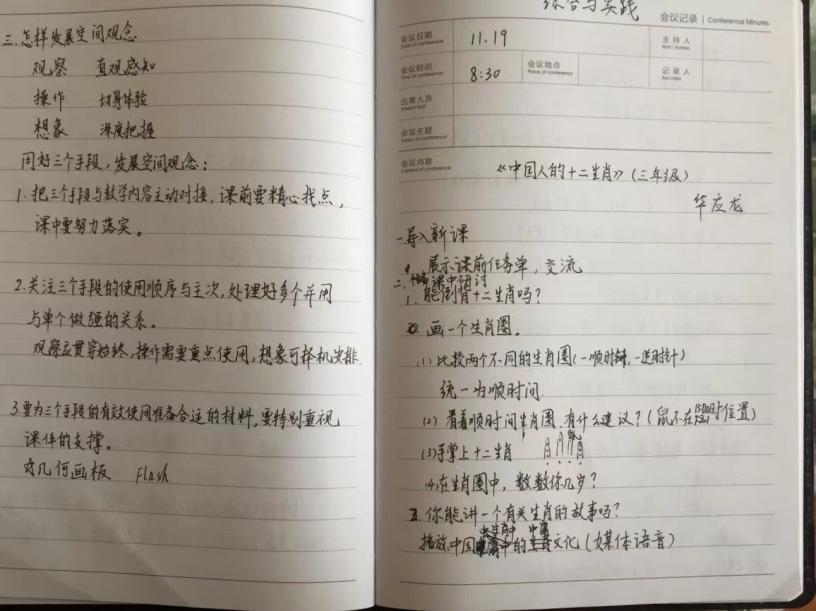 三.怎样发展空间观念
观察 直观感知
操作 切身体验
想象 深度把握
用好三个手段，发展空间观念：
1.把三个手段与教学内容主动对接，课前要精心找点，
课中要努力落实。
2.关注三个手段的使用顺序与主次，处理好多个并用
与单个做强的关系。
观察应贯穿始终，操作需要重点使用，想象可择机安排.
3.要为三个手段的有效使用准备合适的材料，要特别重视
课件的支撑。
几何画板 flash
综合与实践
会议记录 | Conference Minutes
会议日期 11.19 主持人
Date of conference
会议时间 8:30 会议地点 记录人
Place of conference
出席人员
会议主题
会议内容
Content of conference
《中国人的十二生肖》（三年级）
华应龙
一.导入新课
展示课前任务单，交流
二.课中研讨
1.能倒背十二生肖吗？
画一个生肖圈。
(1)比较两个不同的生肖圈(一顺时针，一逆时针)
统一为顺时间
(2)看着顺时间生肖圈，有什么建议？(鼠不在时位置)
(3)手掌上十二生肖
(4)在生肖圈中，数数你几岁？
你能讲一个有关生肖的故事吗？
播放：中国的文化(媒体语音)